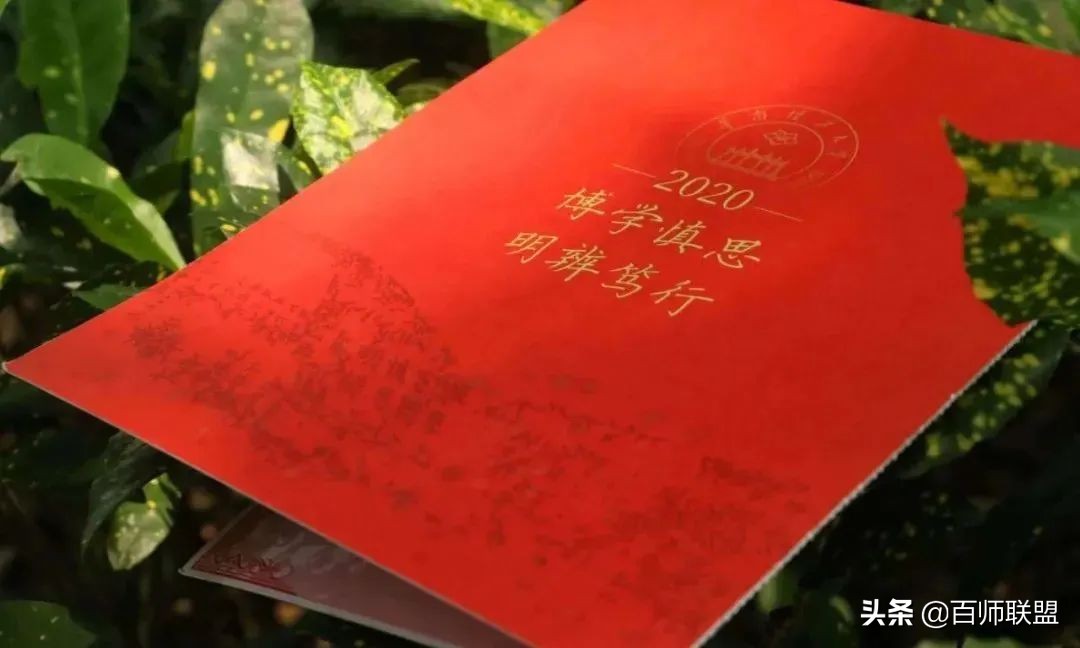 2020
博学慎思
明辨笃行
头条@百师联盟